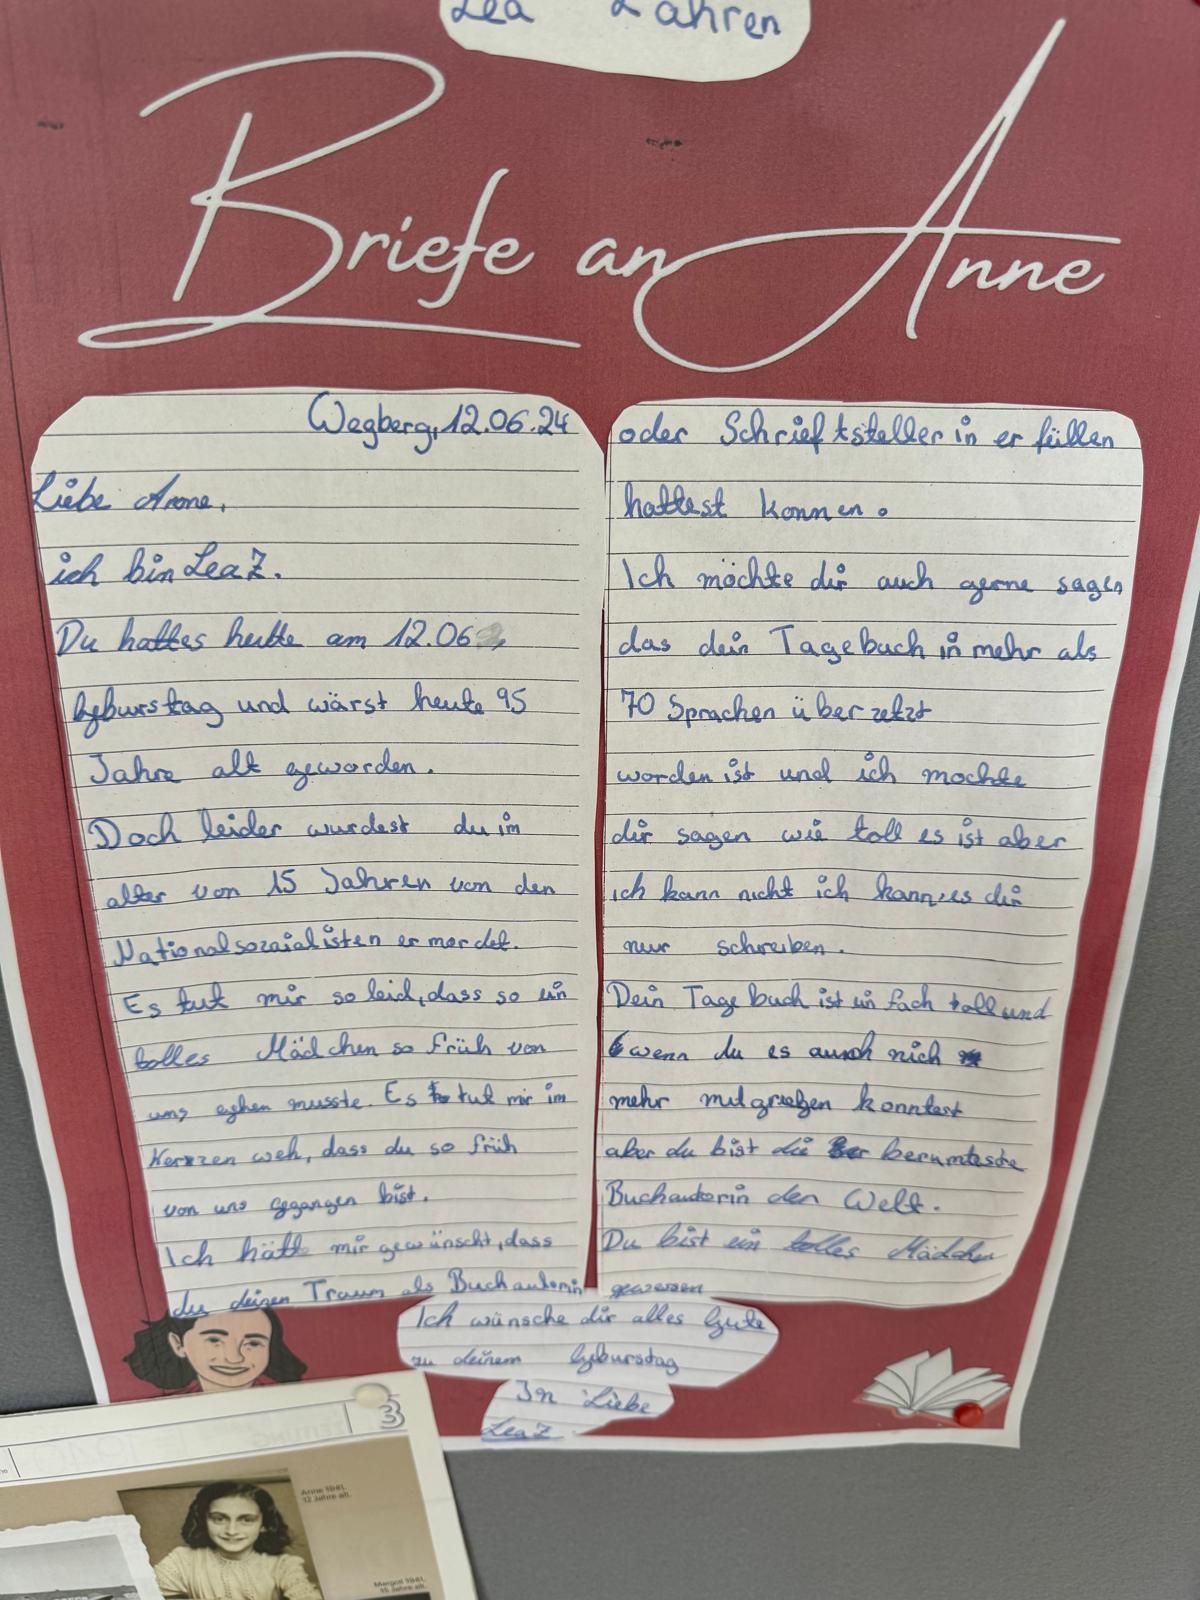 Lea Zahren
Briefe an Anne
Wegberg, 12.06.24
Liebe Anne,
ich bin Lea Z.
Du hattes heute am 12.06
Geburstag und wärst heute 95
Jahre alt geworden.
Doch leider wurdest du im
alter von 15 Jahren von den
Nationalsozaialisten ermordet.
Es tut mir so leid, dass so ein
tolles Mädchen so früh von
uns gehen musste. Es tut mir im
Herzen weh, dass du so früh
von uns gegangen bist.
Ich hätte mir gewünscht, dass
du deinen Traum als Buchautorin
oder Schrieftsteller in er füllen
hattest konnen.
Ich möchte dir auch gerne sagen
das dein Tagebuch in mehr als
70 Sprachen überzetzt
worden ist und ich mochte
dir sagen wie toll es ist aber
ich kann nicht ich kann es dir
nur schreiben.
Dein Tagebuch ist ein fach toll und
wenn du es auch nich
mehr mitgrießen konntest
aber du bist die berumteste
Buchautorin den Welt.
Du bist ein tolles Mädchen
gewessen
Ich wünsche dir alles Gute
zu deinem Geburstag
In Liebe
Lea Z.
3
Anne 1941,
12 Jahre alt.
Margot 1941,
15 Jahre alt.